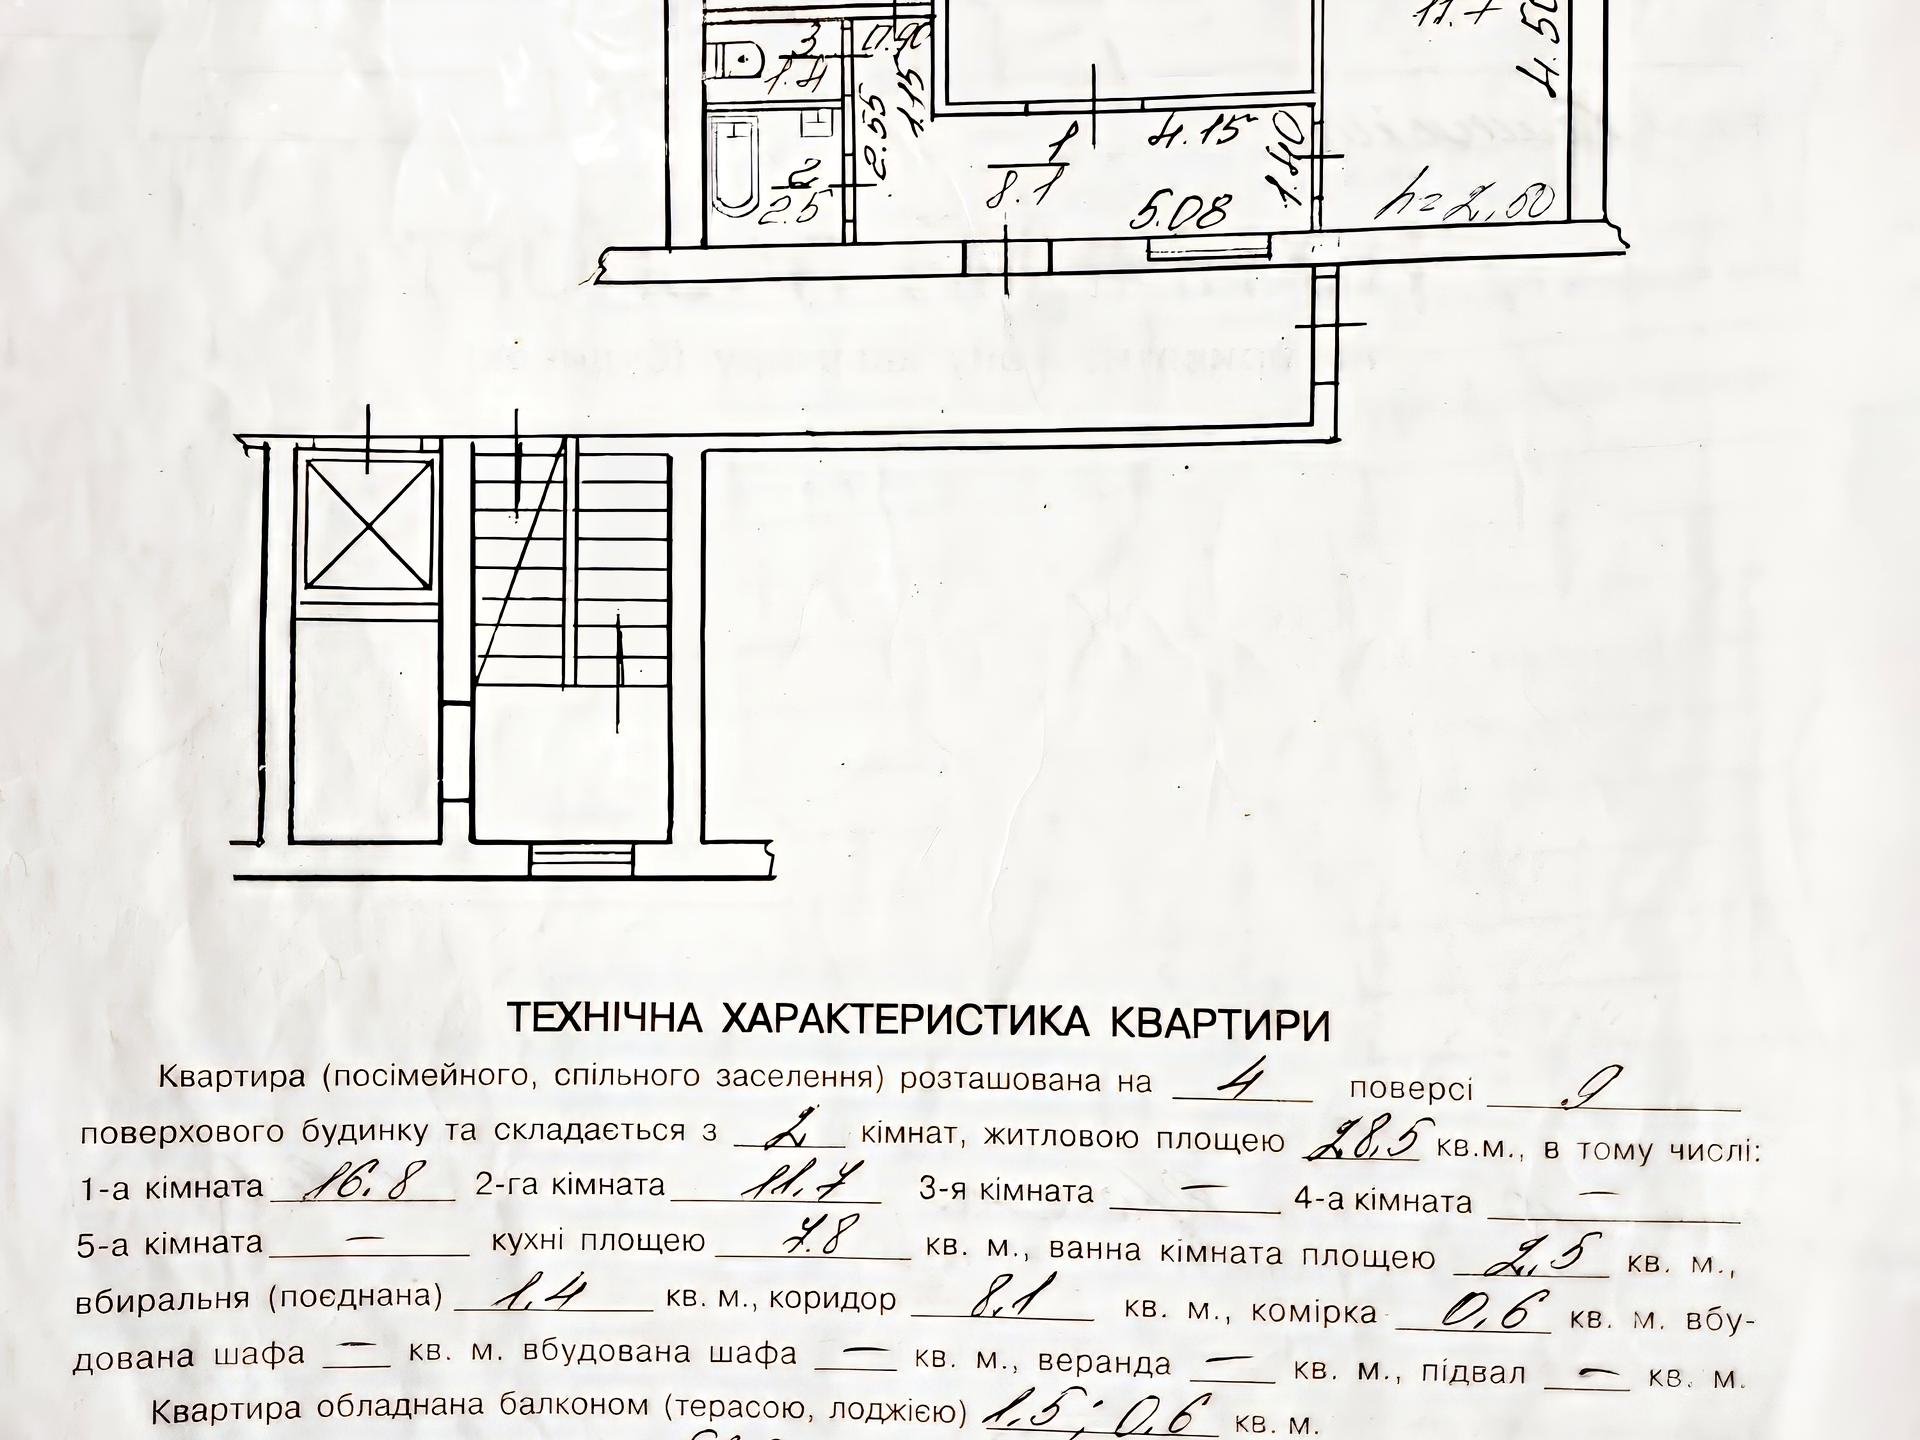 3 0.90
1.4
11.7
4.50
1.15
2.55
4.15
1
8.1
1.40
2
2.5
5.08
h=2,50
ТЕХНІЧНА ХАРАКТЕРИСТИКА КВАРТИРИ
Квартира (посімейного, спільного заселення) розташована на 4 поверсі 9
поверхового будинку та складається з 2 кімнат, житловою площею 28,5 кв.м., в тому числі:
1-а кімната 16.8 2-га кімната 11.7 3-я кімната — 4-а кімната —
5-а кімната — кухні площею 7.8 кв. м., ванна кімната площею 2,5 кв. м.,
вбиральня (поєднана) 1,4 кв. м., коридор 8,1 кв. м., комірка 0,6 кв. м. вбу-
дована шафа — кв. м. вбудована шафа — кв. м., веранда — кв. м., підвал — кв. м.
Квартира обладнана балконом (терасою, лоджією) 1,5; 0,6 кв. м.